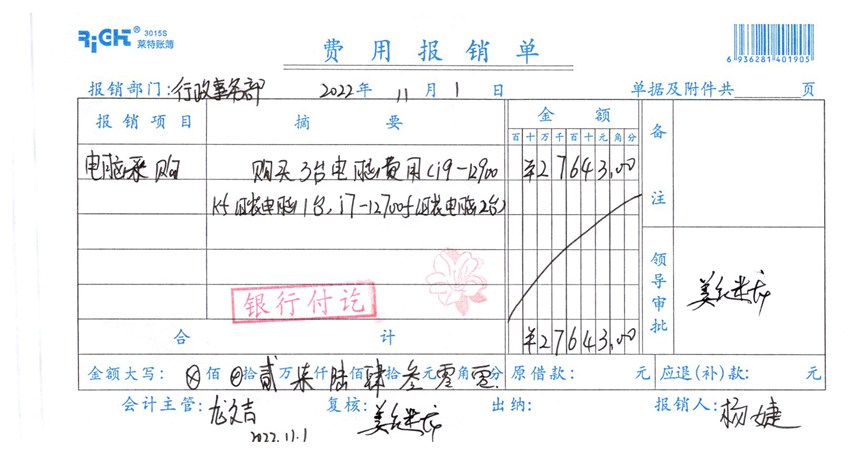 RiGHT® 3015S
莱特账簿
费用报销单
6 936281 401905
报销部门:行政事务部 2022年 11月 1日 单据及附件共 页
报销项目 摘要 金额 备注
百十万千百十元角分
电脑采购 购买3台电脑费用(i9-12900 ¥27643.00
kf组装电脑1台,i7-12700f组装电脑2台)
领导审批
银行付讫
合计 ¥27643.00
金额大写: ⊗佰⊗拾贰万柒仟陆佰肆拾叁元零角零分 原借款: 元 应退(补)款: 元
会计主管:龙文吉 复核: 出纳: 报销人:杨婕
2022.11.1